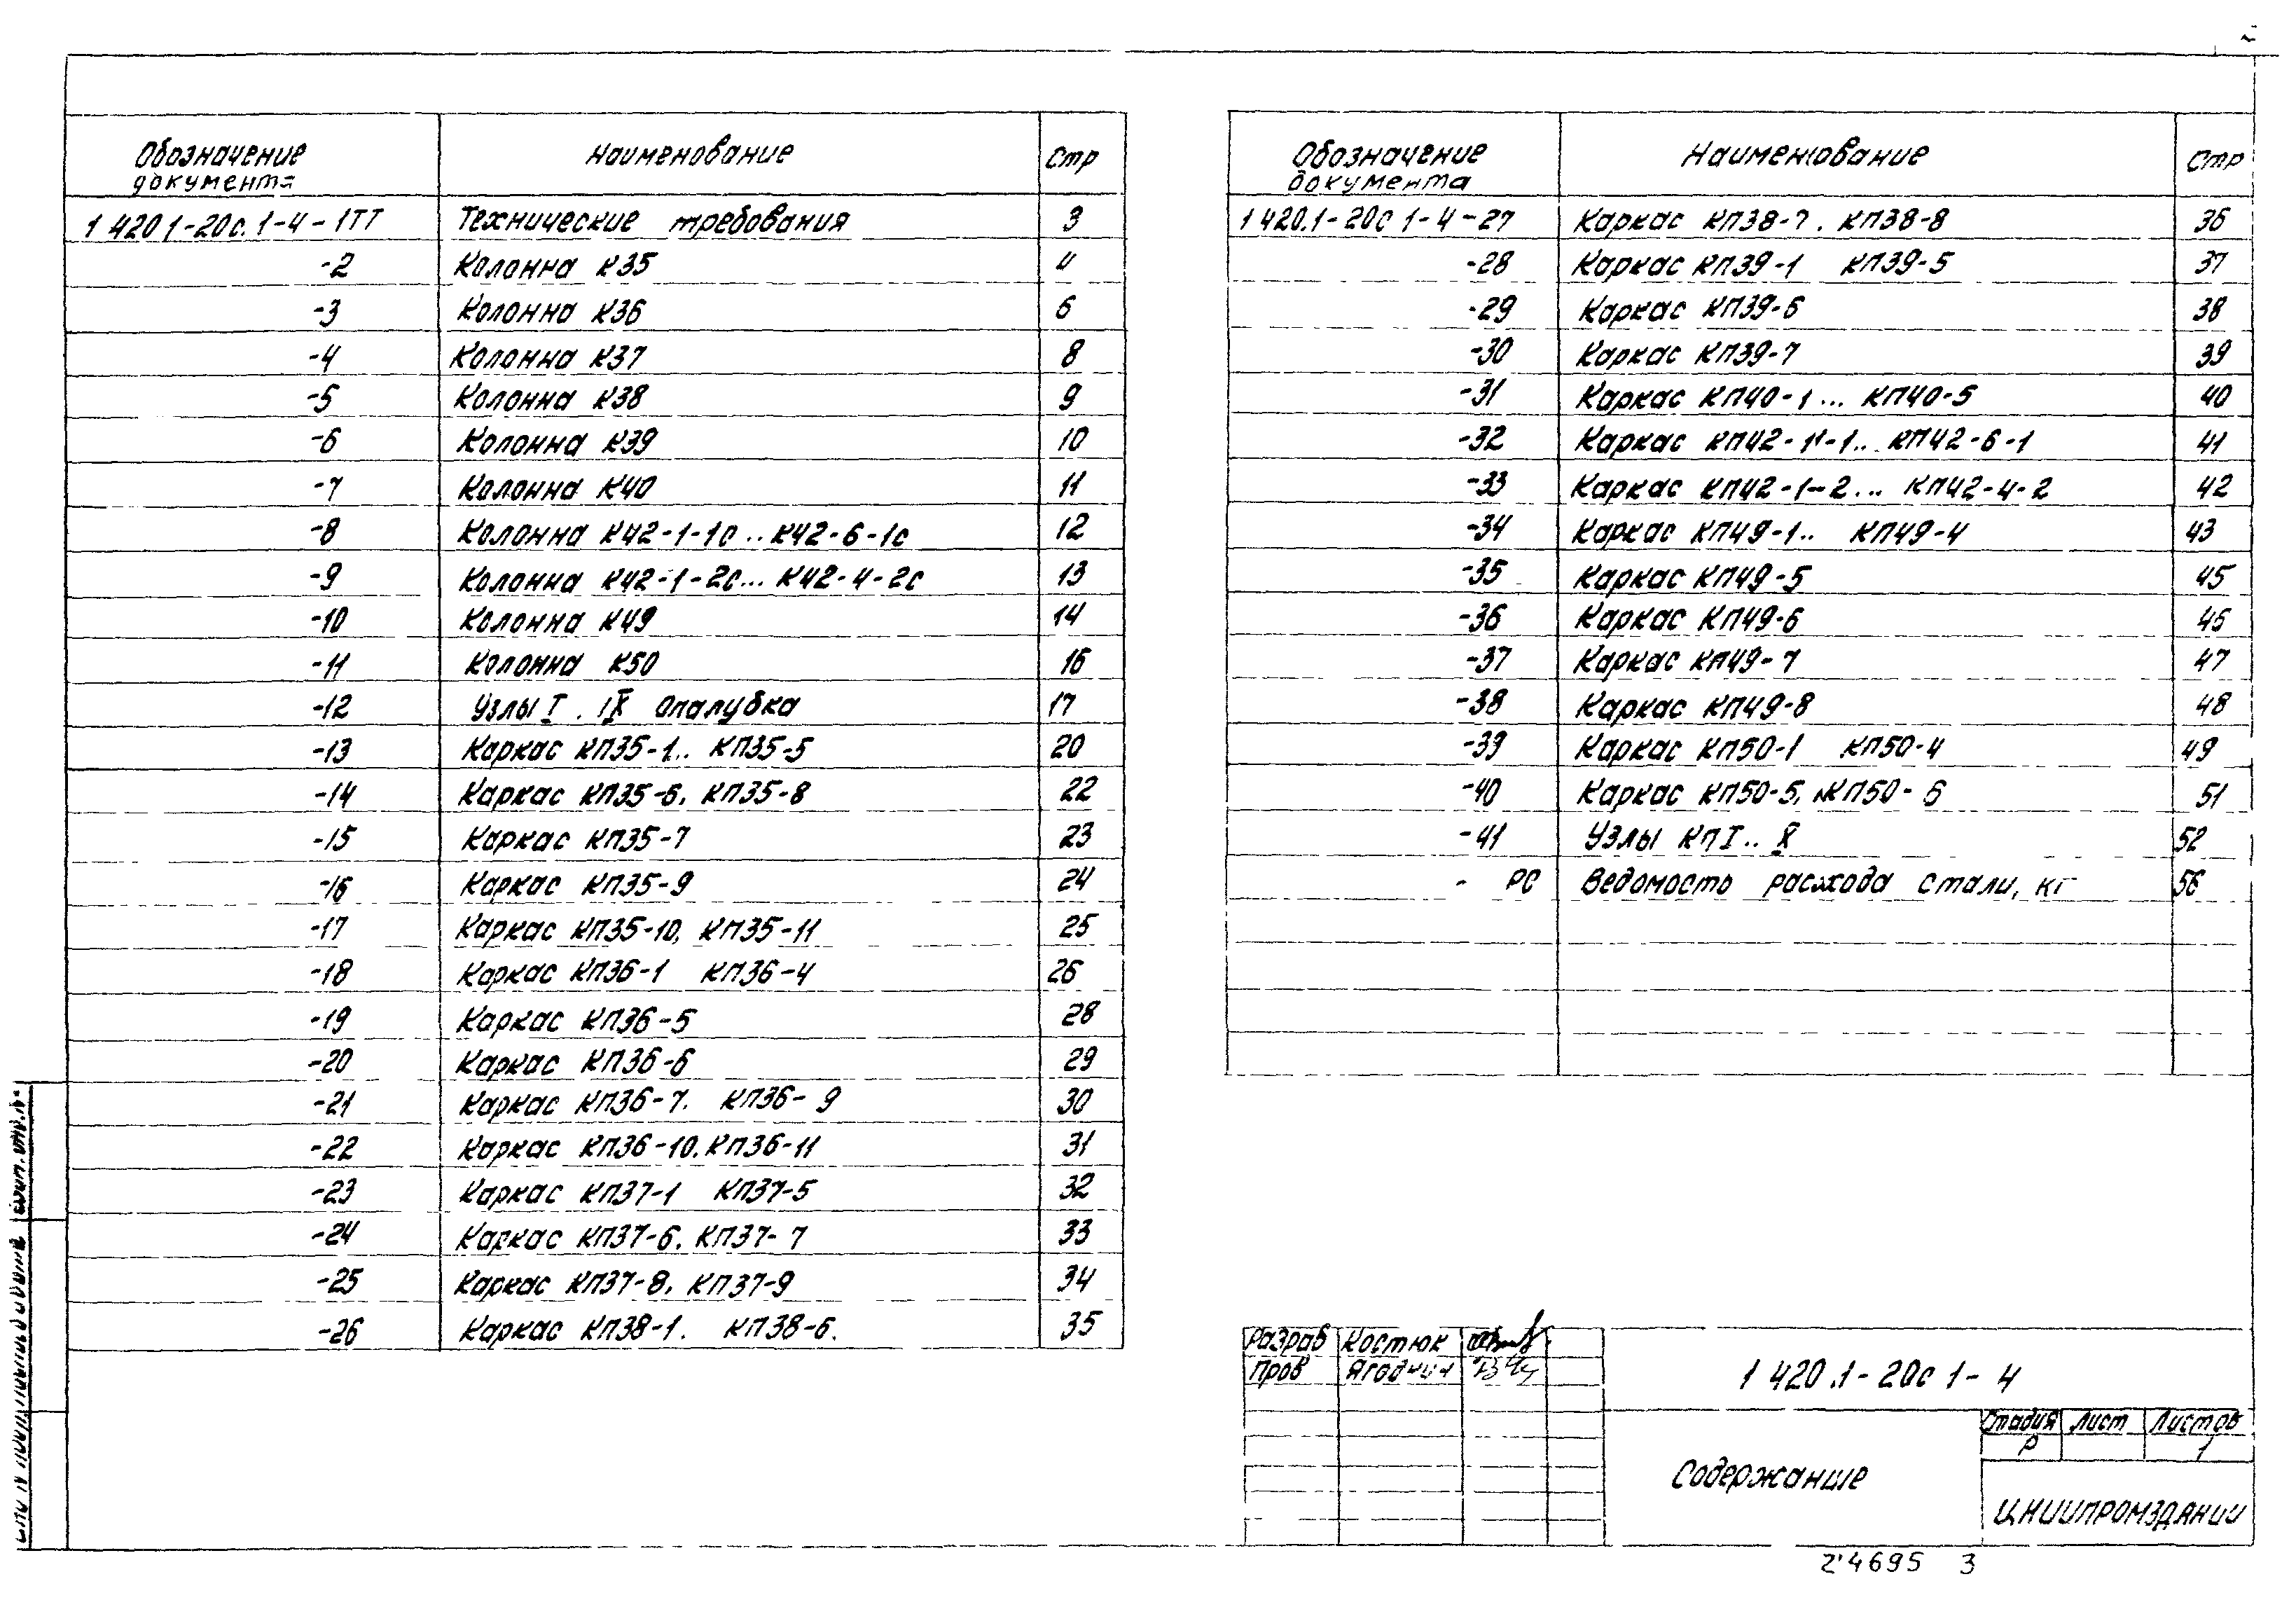 Обозначение документа Наименование Стр
1 420 1-20с. 1-4-1ТТ Технические требования 3
-2 Колонна К35 4
-3 Колонна К36 6
-4 Колонна К37 8
-5 Колонна К38 9
-6 Колонна К39 10
-7 Колонна К40 11
-8 Колонна К42-1-1с .. К42-6-1с 12
-9 Колонна К42-1-2с... К42-4-2с 13
-10 Колонна К49 14
-11 Колонна К50 16
-12 Узлы I . IX Опалубка 17
-13 Каркас КП35-1.. КП35-5 20
-14 Каркас КП35-6, КП35-8 22
-15 Каркас КП35-7 23
-16 Каркас КП35-9 24
-17 Каркас КП35-10, КП35-11 25
-18 Каркас КП36-1 КП36-4 26
-19 Каркас КП36-5 28
-20 Каркас КП36-6 29
-21 Каркас КП36-7. КП36-9 30
-22 Каркас КП36-10, КП36-11 31
-23 Каркас КП37-1 КП37-5 32
-24 Каркас КП37-6, КП37-7 33
-25 Каркас КП37-8, КП37-9 34
-26 Каркас КП38-1. КП38-6. 35
Обозначение документа Наименование Стр
1 420.1-20с 1-4-27 Каркас КП38-7, КП38-8 36
-28 Каркас КП39-1 КП39-5 37
-29 Каркас КП39-6 38
-30 Каркас КП39-7 39
-31 Каркас КП40-1... КП40-5 40
-32 Каркас КП42-1-1.. КП42-6-1 41
-33 Каркас КП42-1-2... КП42-4-2 42
-34 Каркас КП49-1.. КП49-4 43
-35 Каркас КП49-5 45
-36 Каркас КП49-6 46
-37 Каркас КП49-7 47
-38 Каркас КП49-8 48
-39 Каркас КП50-1 КП50-4 49
-40 Каркас КП50-5, КП50-6 51
-41 Узлы КП I .. X 52
- РС Ведомость расхода стали, кг 56
Разраб Костюк
Пров Ягодкин
1 420.1-20с 1-4
Содержание
Стадия Лист Листов
Р 1
ЦНИИПРОМЗДАНИЙ
24695 3